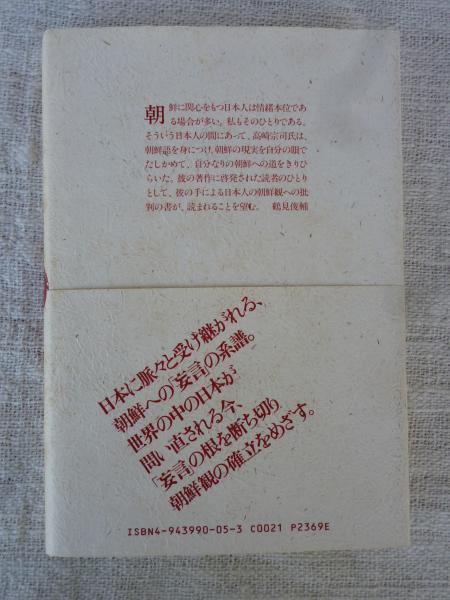 朝鮮に関心をもつ日本人は情緒本位であ
る場合が多い。私もそのひとりである。
そういう日本人の間にあって、高崎宗司氏は、
朝鮮語を身につけ、朝鮮の現実を自分の眼で
たしかめて、自分なりの朝鮮への道をきりひ
らいた。彼の著作に啓発された読者のひとり
として、彼の手による日本人の朝鮮観への批
判の書が、読まれることを望む。 鶴見俊輔
日本に脈々と受け継がれる、
朝鮮への「妄言」の系譜。
世界の中の日本が
問い直される今、
「妄言」の根を断ち切り
朝鮮観の確立をめざす。
ISBN4-943990-05-3 C0021 P2369E